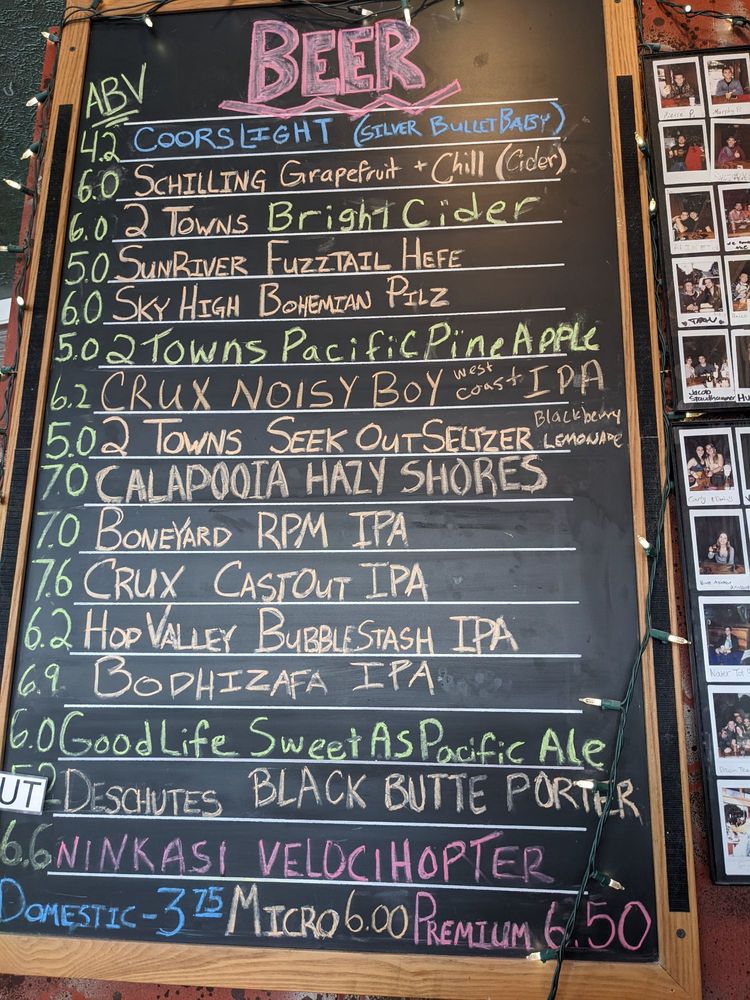 BEER
ABV
4.2 COORS LIGHT (SILVER BULLET BABY)
6.0 SCHILLING Grapefruit + Chill (Cider)
6.0 2 TOWNS Bright Cider
5.0 SUNRIVER FUZZTAIL HEFE
6.0 SKY HIGH BOHEMIAN PILZ
5.0 2 Towns Pacific PineApple
6.2 CRUX NOISY BOY west coast IPA
5.0 2 TOWNS SEEK OUT SELTZER Blackberry LEMONADE
7.0 CALAPOOIA HAZY SHORES
7.0 BONEYARD RPM IPA
7.6 CRUX CASTOUT IPA
6.2 HOP VALLEY BUBBLESTASH IPA
6.9 BODHIZAFA IPA
6.0 GoodLife SweetAsPacific Ale
UT
DESCHUTES BLACK BUTTE PORTER
6.6 NINKASI VELOCIHOPTER
DOMESTIC - 3 75 MICRO 6.00 PREMIUM 6.50